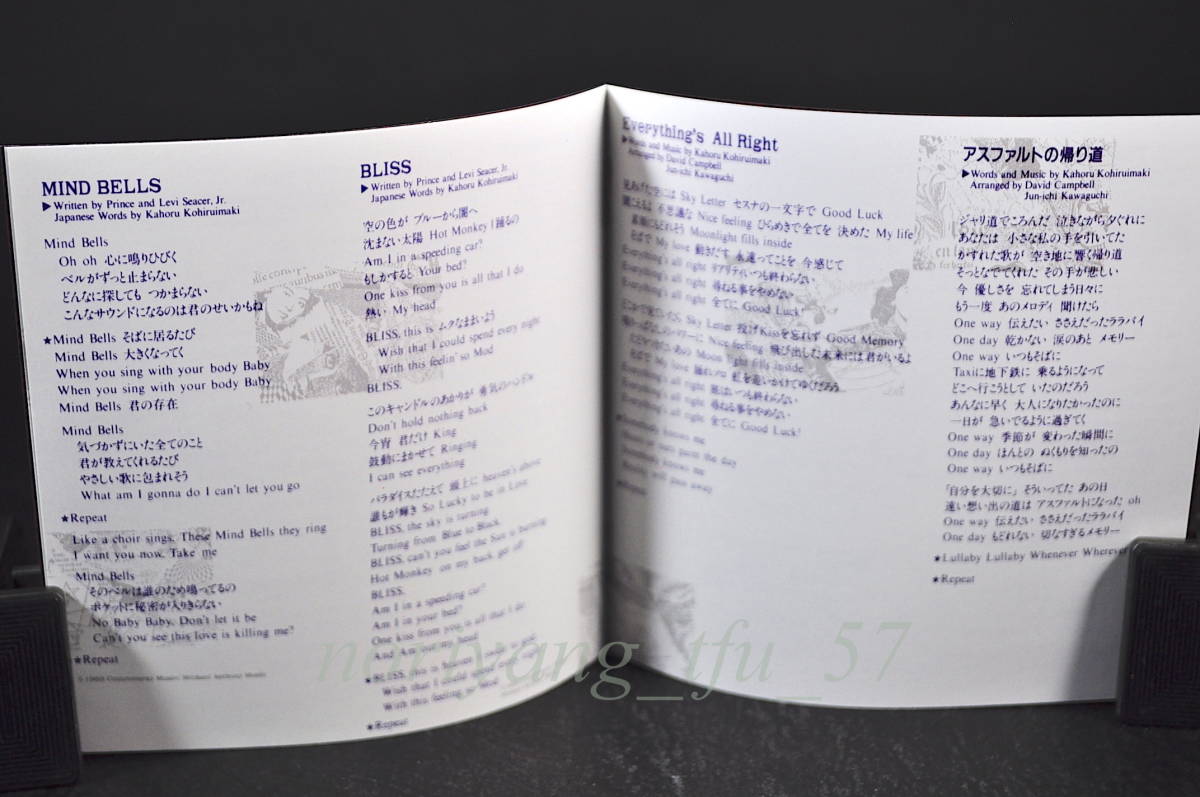 MIND BELLS
▶Written by Prince and Levi Seacer, Jr.
Japanese Words by Kahoru Kohiruimaki
Mind Bells
Oh oh 心に鳴りひびく
ベルがずっと止まらない
どんなに探しても つかまらない
こんなサウンドになるのは君のせいかもね
★Mind Bells そばに居るたび
Mind Bells 大きくなってく
When you sing with your body Baby
When you sing with your body Baby
Mind Bells 君の存在
Mind Bells
気づかずにいた全てのこと
君が教えてくれるたび
やさしい歌に包まれそう
What am I gonna do I can't let you go
★Repeat
Like a choir sings. These Mind Bells they ring
I want you now. Take me
Mind Bells
そのベルは誰のため鳴ってるの
ポケットに秘密が入りきらない
No Baby Baby. Don't let it be
Can't you see this love is killing me?
★Repeat
BLISS
▶Written by Prince and Levi Seacer, Jr.
Japanese Words by Kahoru Kohiruimaki
空の色が ブルーから闇へ
沈まない太陽 Hot Monkey 踊るの
Am I in a speeding car?
もしかすると Your bed?
One kiss from you is all that I do
熱い My head
BLISS, this is ムクなままいよう
Wish that I could spend every night
With this feelin' so Mod
BLISS.
このキャンドルのあかりが 勇気のハンドル
Don't hold nothing back
今宵 君だけ King
鼓動にまかせて Ringing
I can see everything
パラダイスたたえて 頭上に heaven's above
誰もが輝き So Lucky to be in Love
BLISS, the sky is turning
Turning from Blue to Black
BLISS, can't you feel the Sun is burning
Hot Monkey on my back, get off
BLISS.
Am I in a speeding car?
Am I in your bed?
One kiss from you is all that I do
And Am out my head
★BLISS, this is heaven I swear to god
Wish that I could spend
With this feeling so Mod
★Repeat
Everything's All Right
▶Words and Music by Kahoru Kohiruimaki
Arranged by David Campbell
Jun-ichi Kawaguchi
見あげた空には Sky Letter セスナの一文字で Good Luck
聞こえる 不思議な Nice feeling ひらめきで全てを 決めた My life
素顔にもどれそう Moonlight fills inside
そばで My love 動きだす 永遠ってことを 今感じて
Everything's all right リアリティいつも終わらない
Everything's all right 尋ねる事をやめない
Everything's all right 全てに Good Luck!
Sky Letter 投げKissを忘れず Good Memory
Nice feeling 飛び出した未来には 君がいるよ
Moon light fills inside
そばで My love 踊れい 虹を追いかけてゆくだろう
Everything's all right 旅はいつも終わらない
Everything's all right 尋ねる事をやめない
Everything's all right 全てに Good Luck!
★Somebody knows me
knows me
アスファルトの帰り道
▶Words and Music by Kahoru Kohiruimaki
Arranged by David Campbell
Jun-ichi Kawaguchi
ジャリ道でころんだ 泣きながら夕ぐれに
あなたは 小さな私の手を引いてた
かすれた歌が 空き地に響く帰り道
そっとなでてくれた その手が悲しい
今 優しさを 忘れてしまう日々に
もう一度 あのメロディ 聞けたら
One way 伝えたい ささえだったララバイ
One day 乾かない 涙のあと メモリー
One way いつもそばに
Taxiに地下鉄に 乗るようになって
どこへ行こうとして いたのだろう
あんなに早く 大人になりたかったのに
一日が 急いでるように過ぎてく
One way 季節が 変わった瞬間に
One day ほんとの ぬくもりを知ったの
One way いつもそばに
「自分を大切に」そういってた あの日
遠い想い出の道は アスファルトになった oh
One way 伝えたい ささえだったララバイ
One day もどれない 切なすぎるメモリー
★Lullaby Lullaby Whenever Wherever
★Repeat